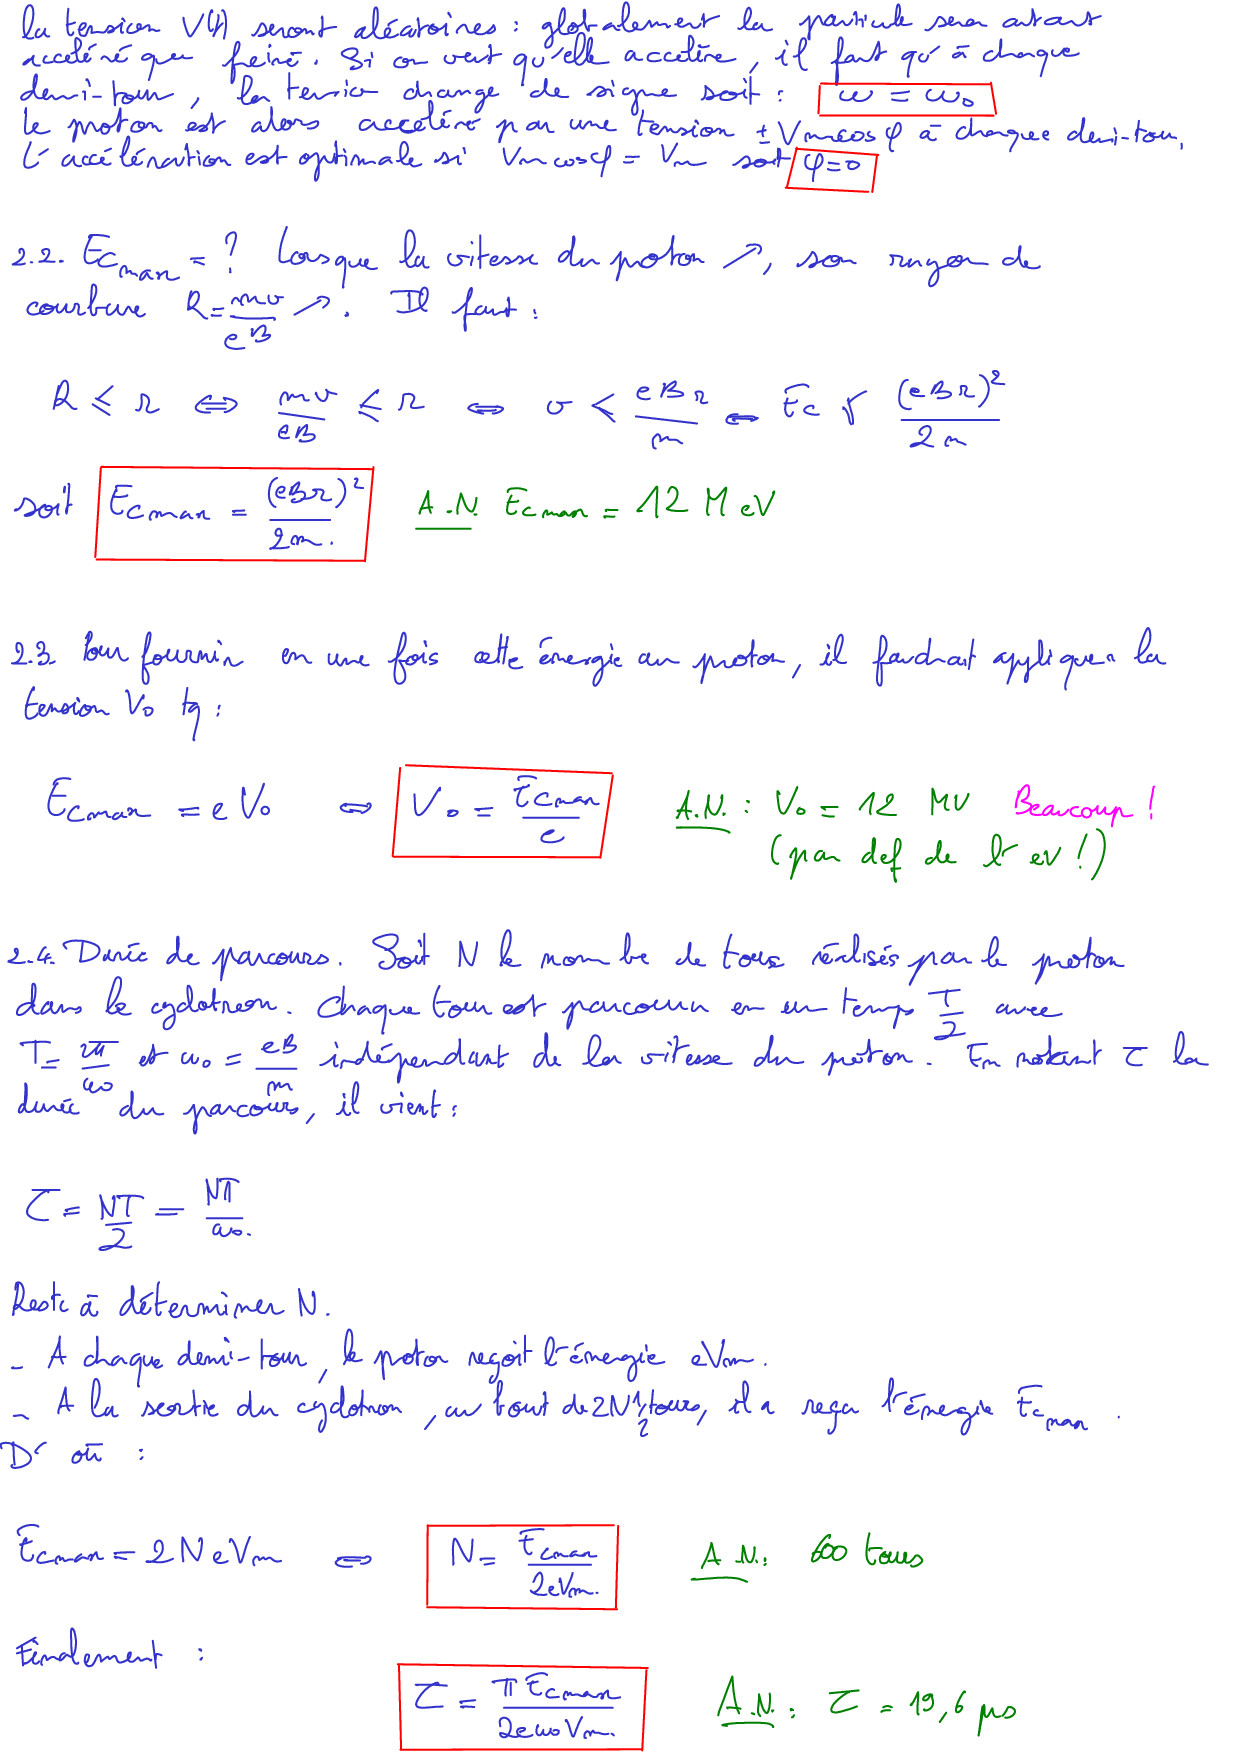 la tension V(t) seront aléatoires : globalement la particule sera autant
accéléré que freiné. Si on veut qu'elle accélère, il faut qu'à chaque
demi-tour, la tension change de signe soit : ω = ω₀
Le proton est alors accéléré par une tension ± Vm cos φ à chaque demi-tour.
L'accélération est optimale si Vm cos φ = Vm soit φ = 0
2.2. Ec max = ? Lorsque la vitesse du proton ↗, son rayon de
courbure R = mv/eB ↗. Il faut :
R ≤ r ⇔ mv/eB ≤ r ⇔ v < eBr/m ⇔ Ec ≤ (eBr)²/2m
soit Ec max = (eBr)²/2m. A.N. Ec max = 12 MeV
2.3. Pour fournir en une fois cette énergie au proton, il faudrait appliquer la
tension V₀ tq :
Ec max = e V₀ ⇔ V₀ = Ec max/e A.N. : V₀ = 12 MV Beaucoup !
(par def de l'eV !)
2.4. Durée de parcours. Soit N le nombre de tours réalisés par le proton
dans le cyclotron. Chaque tour est parcouru en un temps T/2 avec
T = 2π/ω₀ et ω₀ = eB/m indépendant de la vitesse du proton. En notant τ la
durée du parcours, il vient :
τ = NT/2 = Nπ/ω₀.
Reste à déterminer N.
- A chaque demi-tour, le proton reçoit l'énergie eVm.
- A la sortie du cyclotron, au bout de 2N 1/2 tours, il a reçu l'énergie Ec max.
D'où :
Ec max = 2 N e Vm ⇔ N = Ec max/2eVm. A.N. : 600 tours
Finalement :
τ = π Ec max/2eω₀Vm. A.N. : τ = 19,6 μs